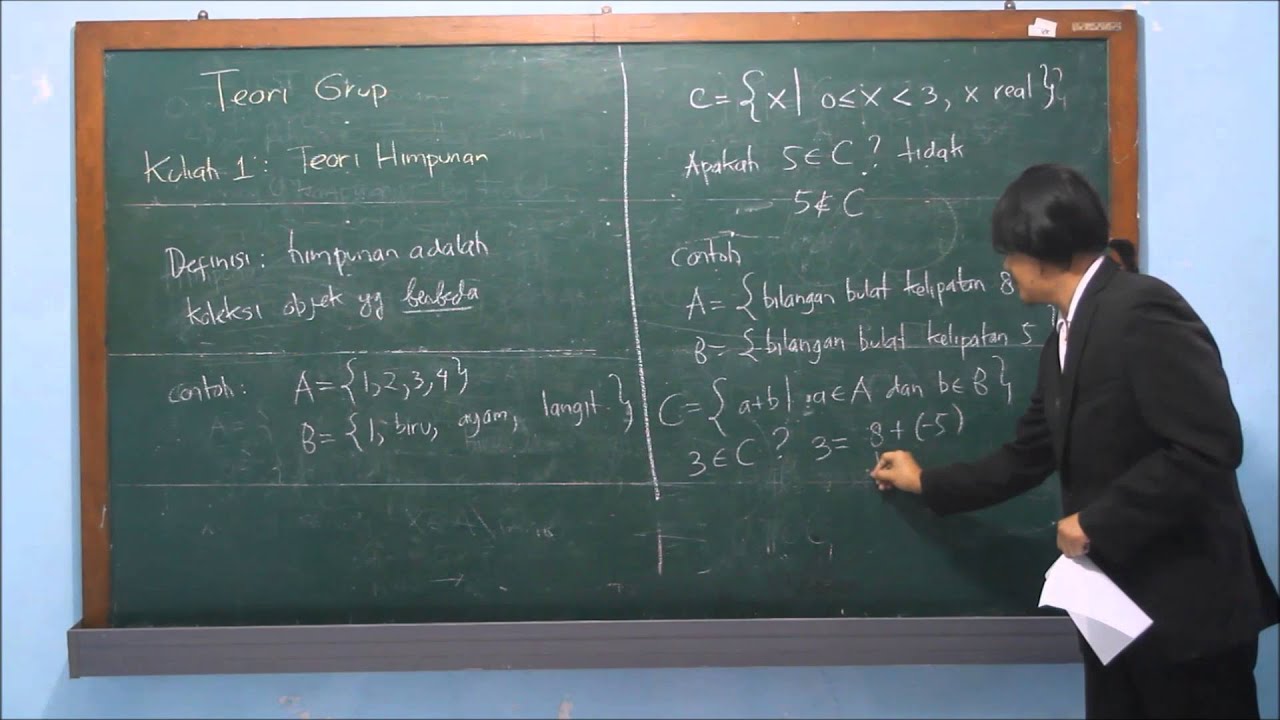 Teori Grup
Kuliah 1: Teori Himpunan
Definisi: himpunan adalah
koleksi objek yg berbeda
contoh: A = {1, 2, 3, 4}
B = {1, biru, ayam, langit}
C = {x | 0 ≤ x < 3, x real}
Apakah 5 ∈ C? tidak
5 ∉ C
contoh
A = {bilangan bulat kelipatan 8
B = {bilangan bulat kelipatan 5
C = {a+b | a ∈ A dan b ∈ B}
3 ∈ C? 3 = 8 + (-5)